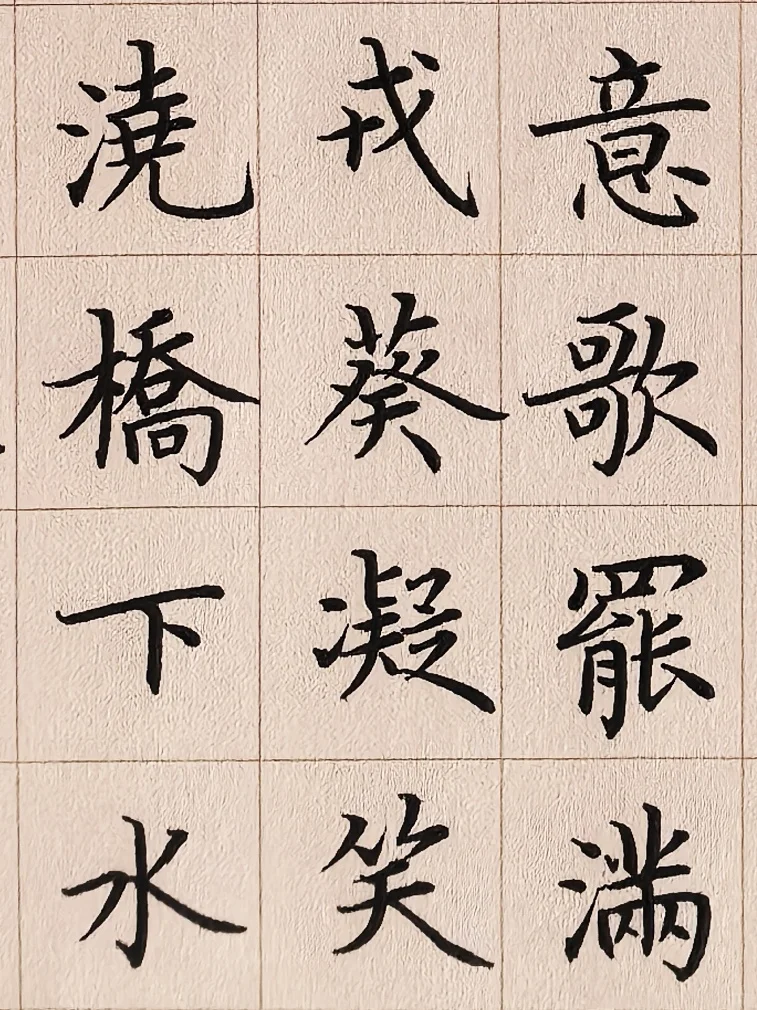 意歌罷滿
戎葵凝笑
澆橋下水